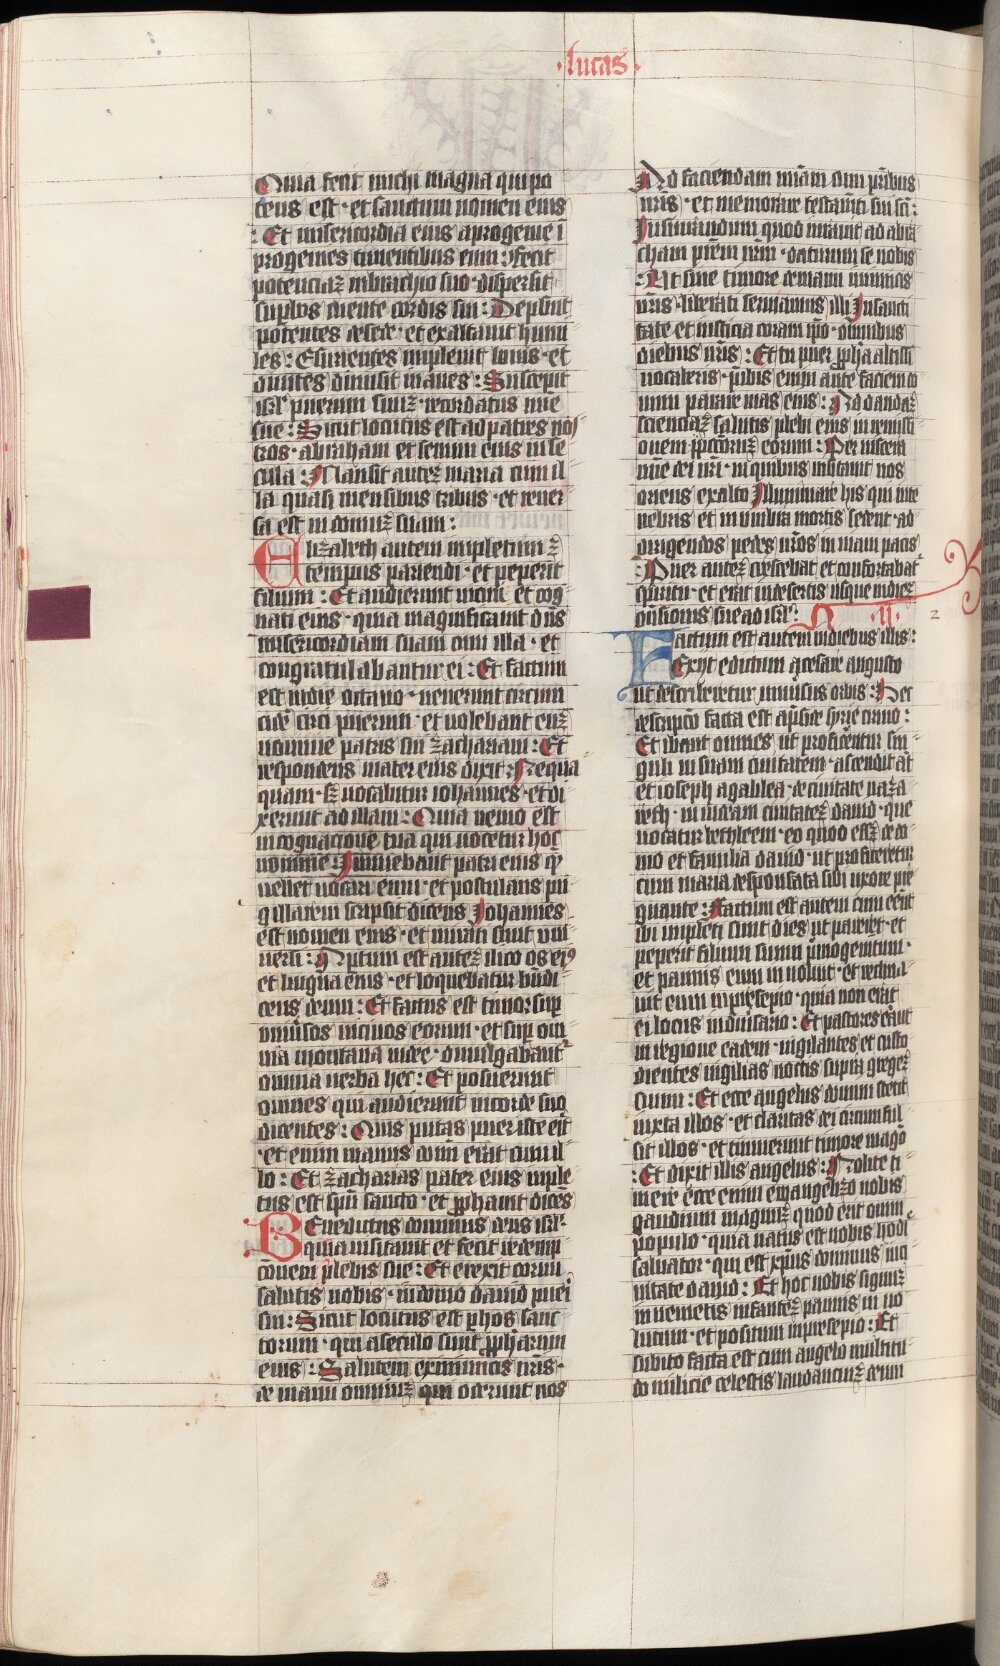 ·lucas·
Quia fecit michi magna qui po
tens est · et sanctum nomen eius
: Et misericordia eius aprogenie ī
progenies timentibus eum : Fecit
potenciaꝫ inbrachio suo · dispersit
suꝑbos mente cordis sui : Deposuit
potentes desede · et exaltauit humi
les : Esurientes impleuit bonis · et
diuites dimisit inanes : Suscepit
isrl̄ puerum suuꝫ · recordatus mīe
sue : Sicut locutus est ad patres nos
tros · abraham et semini eius in se
cula : Mansit auteꝫ maria cum il
la quasi mensibus tribus · et reuer
sa est in domuꝫ suam :
Elizabeth autem impletum ē
tempus pariendi · et peperit
filium : Et audierunt uicini et cog
nati eius · quia magnificauit dn̄s
misericordiam suam cum illa · et
congratulabantur ei : Et factum
est indie octauo · uenerunt circum
cide͂ē puerum · et uolebant euꝫ
nomine patris sui zachariam : Et
respondens mater eius dixit Nequa
quam · sꝫ uocabitur iohannes · et di
xerunt ad illam : Quia nemo est
in cognacione tua qui uocetur hoc
nomine : Innuebant patri eius qͥ
uellet uocari eum · et postulans pu
gillarem scripsit dicens Johannes
est nomen eius · et mirati sunt uni
uersi : Aptum est auteꝫ ilico os eiꝰ
et lingua eius · et loquebatur bn̄di
cens deum : Et factus est timor sup
om̄s uicinos eorum · et suꝑ om
nia montana iudee · diuulgabant᷑
omnia uerba hec : Et posuerunt
omnes qui audierunt in corde suo
dicentes : Quis putas puer iste erit
· et enim manus dom̄i erat cum il
lo : Et zacharias pater eius imple
tus est spū sancto · et ꝓphauit dice͂s
Benedictus dominus deus isrl̄
quia uisitauit et fecit redemp
cōnem plebis sue : Et erexit cornu
salutis nobis · in domo dauid pueī
sui : Sicut locutus est ꝑ hos sanc
torum · qui aseculo sunt ꝓph̄arum
eius : Salutem exinimicis nr̄is ·
de manu omniuꝫ qui oderunt nos
Ad faciendam mīam cum pr̄ibus
nr̄is · et memorare testam̄ti sui sc̄i :
Jusiurandum quod iurauit ad abra
cham pr̄em nr̄m · daturum se nobis
: Ut sine timore demanu inimicos
nr̄is · liberati seruiamus illi Insancti
tate et iusticia coram ip̄o · omnibus
diebus nr̄is : Et tu puer ꝓph̄a altissi
uocaberis · p̄ibis enim ante faciem do
mini parare uias eius : Ad dandaꝫ
scienciaꝫ salutis plebi eius in remissi
onem pc̄c̄oruꝫ eorum : Per uiscera
mīe dei nr̄i · in quibus uisitauit nos
oriens exalto Illuminare his qui in te
nebris et in umbra mortis sedent · ad
dirigendos pedes nr̄os in uiam pacis
: Puer auteꝫ crescebat et confortabat᷑
spiritu · et erat indesertis usque indieꝫ
on̄sionis sue ad isrl̄ : II.
2
Factum est autem indiebus illis :
Exijt edictum acesare augusto
ut describeretur uniuersus orbis : Hec
descripcō facta est ap̄side syrie cirino :
Et ibant omnes ut profiterentur sin
guli in suam ciuitatem · ascendit āt
et ioseph agalilea · de ciuitate naza
reth · in iudam ciuitateꝫ dauid · que
uocatur bethleem · eo quod esset de do
mo et familia dauid · ut profiteretur
cum maria desponsata sibi uxore p̄e
gnante : Factum est autem cum ee͂nt
ibi impleti sunt dies ut pareret · et
peperit filium suum p̄mogenitum ·
et pannis eum in uoluit · et reclina
uit eum inpresepio · quia non erat
ei locus indiuisario : Et pastores erāt
in regione eadem · uigilantes et custo
dientes uigilias noctis supra gregeꝫ
suum : Et ecce angelus domini stetit
iuxta illos · et claritas dei circumful
sit illos · et timuerunt timore magō
: Et dixit illis angelus : Nolite ti
mere ecce enim ewangelizo nobis
gaudium magnuꝫ quod erit omni
populo · quia natus est nobis hodie
saluator · qui est xp̄us dominus in ci
uitate dauid : Et hoc uobis signuꝫ
inuenietis infanteꝫ pannis in uo
lutum · et positum inpresepio : Et
subito facta est cum angelo multitu
do milicie celestis laudanciuꝫ deum